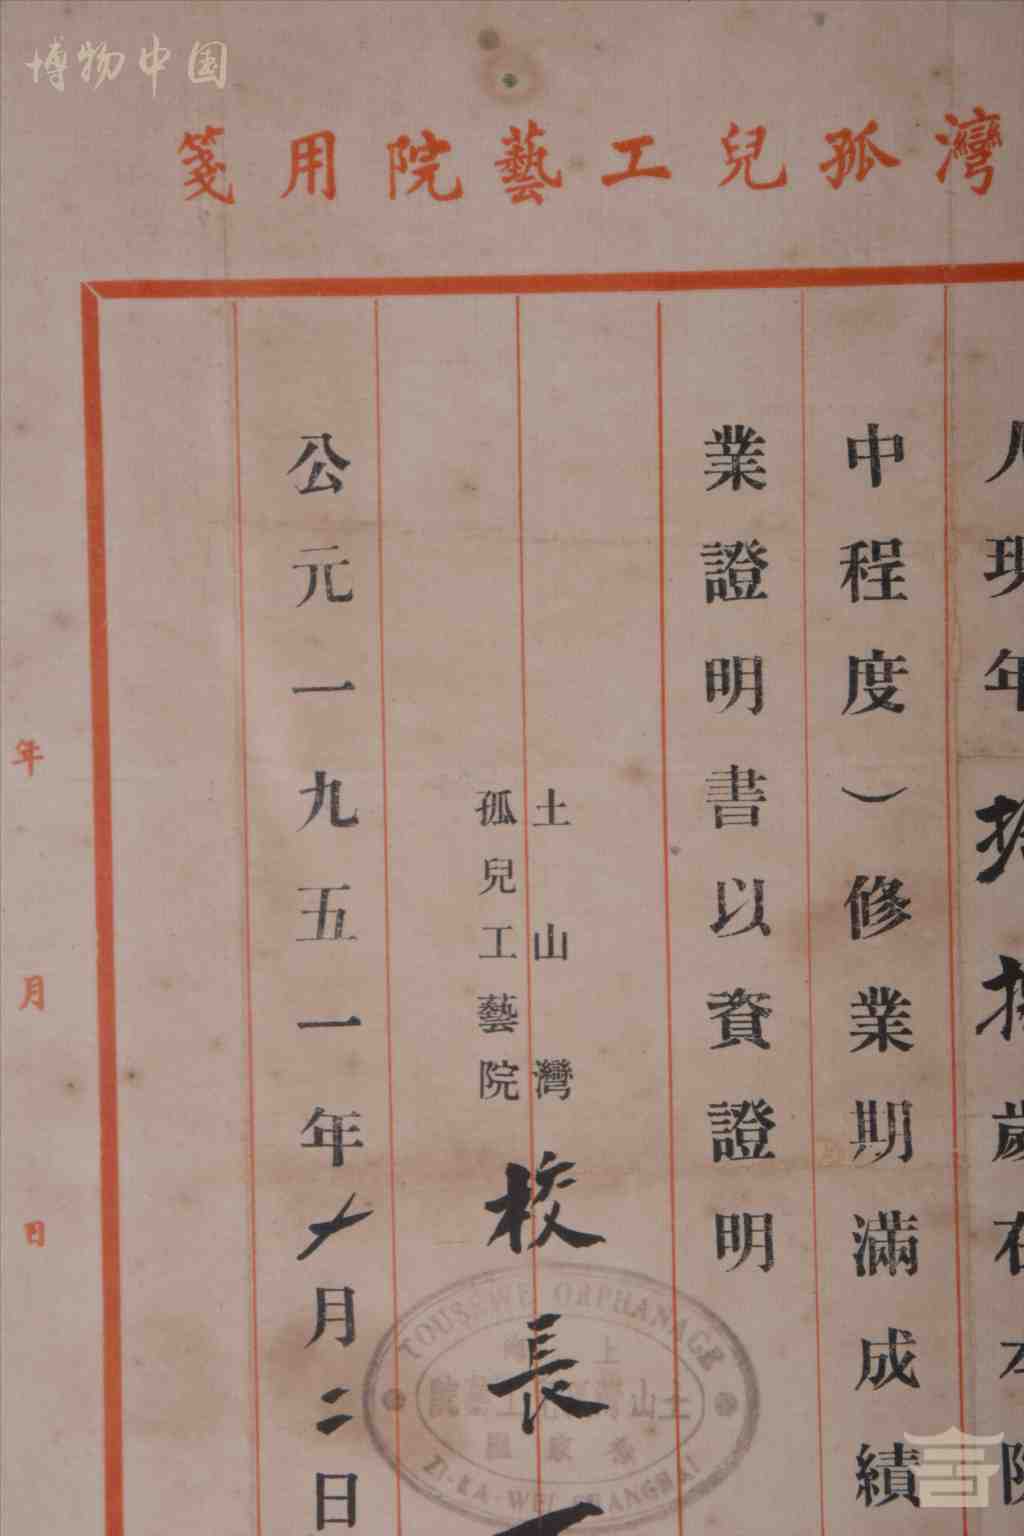 博物中国
灣孤兒工藝院用箋
人現年
拾歲在本院
中程度）修業期滿成績
業證明書以資證明
土山灣
孤兒工藝院
校長
公元一九五一年十月二日
年月日
TOUSEWE ORPHANAGE
上海
土山灣孤兒工藝院
徐家匯
ZI-KA-WEI SHANGHAI